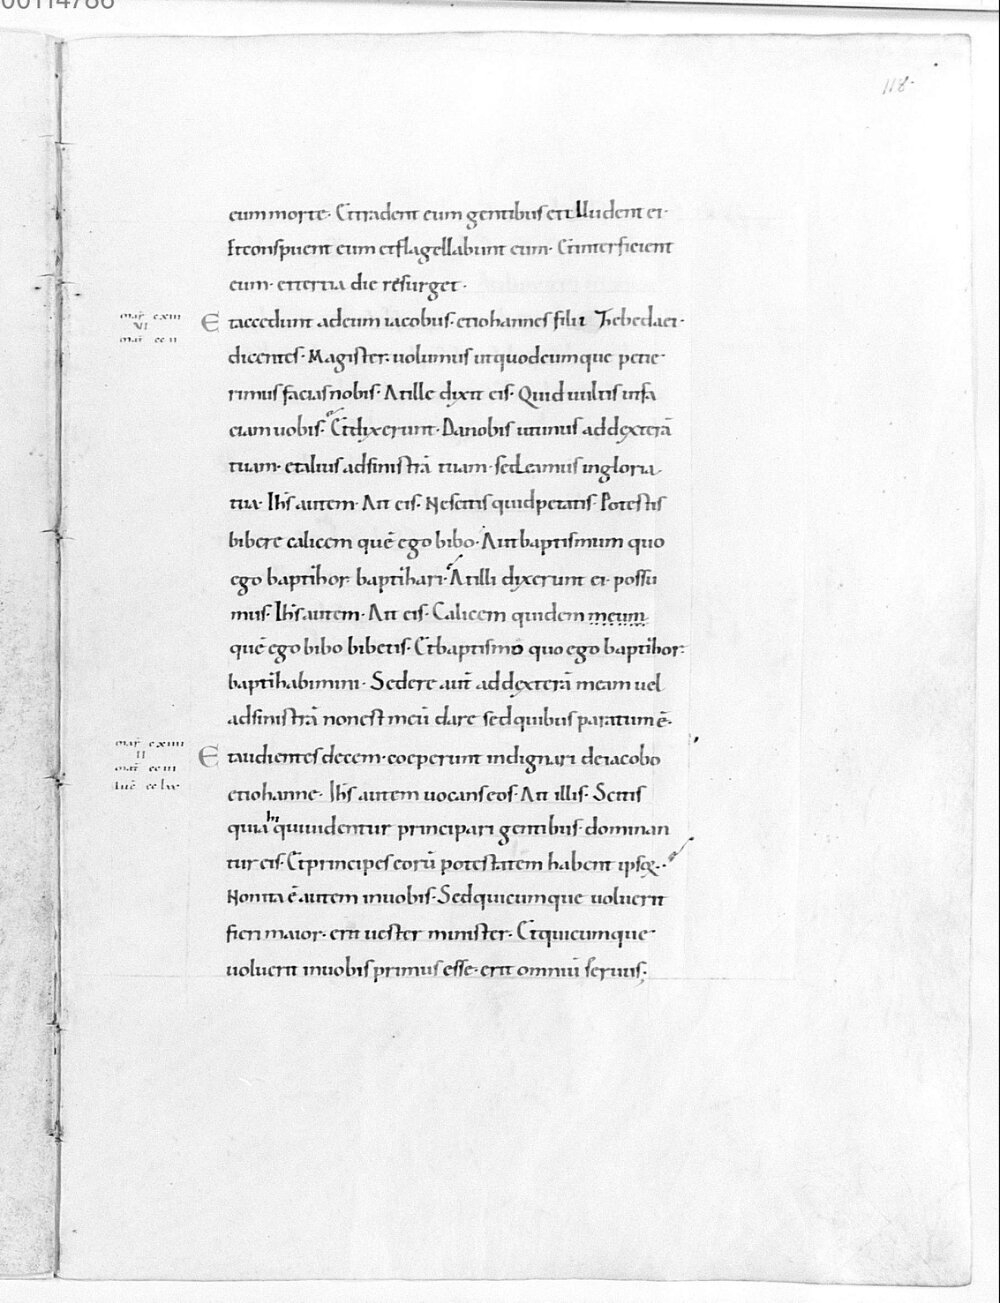 00114786
118.
eum morte. Et tradent eum gentibus et illudent ei.
Et conspuent eum et flagellabunt eum. Et interficient
eum. et tertia die resurget.
mar cxiii
VI
mat cc ii
Et accedunt ad eum iacobus. et iohannes filii Zebedaei.
dicentes. Magister. uolumus ut quodcumque petie
rimus facias nobis. At ille dixit eis. Quid uultis ut fa
ciam uobis. Et dixerunt. Da nobis ut unus ad dexterā
tuam. et alius ad sinistrā tuam. sedeamus in gloria
tua. Ihs autem. Ait eis. Nescitis quid petatis. Potestis
bibere calicem quē ego bibo. Aut baptismum quo
ego baptizor. baptizari. At illi dixerunt ei. possu
mus. Ihs autem. Ait eis. Calicem quidem meum
quē ego bibo bibetis. Et baptismo quo ego baptizor.
baptizabimini. Sedere aut̄ ad dexterā meam uel
ad sinistrā non est meū dare sed quibus paratum ē.
mar cxiiii
II
mat cc iii
luc cc lxx
Et audientes decem. coeperunt indignari de iacobo
et iohanne. Ihs autem uocans eos. Ait illis. Scitis
quia hi qui uidentur principari gentibus. dominan
tur eis. Et principes eorū potestatem habent ipsoꝝ.
Non ita ē autem in uobis. Sed quicumque uoluerit
fieri maior. erit uester minister. Et quicumque.
uoluerit in uobis primus esse. erit omniū seruus;